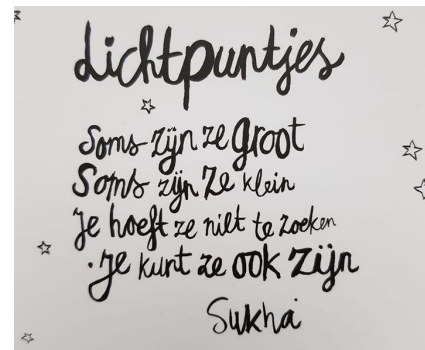 Lichtpuntjes
Soms zijn ze groot
Soms zijn ze klein
Je hoeft ze niet te zoeken
Je kunt ze ook zijn
Sukha